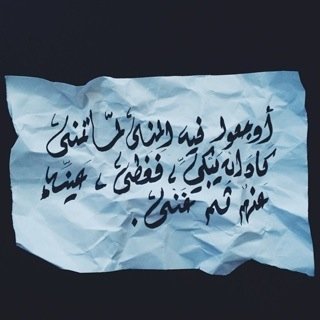 أوجعوا فيه المنى لمّا تمنى
كاد أن يبكي ، فغطى ، عينيه
عنهم ثم غنى .